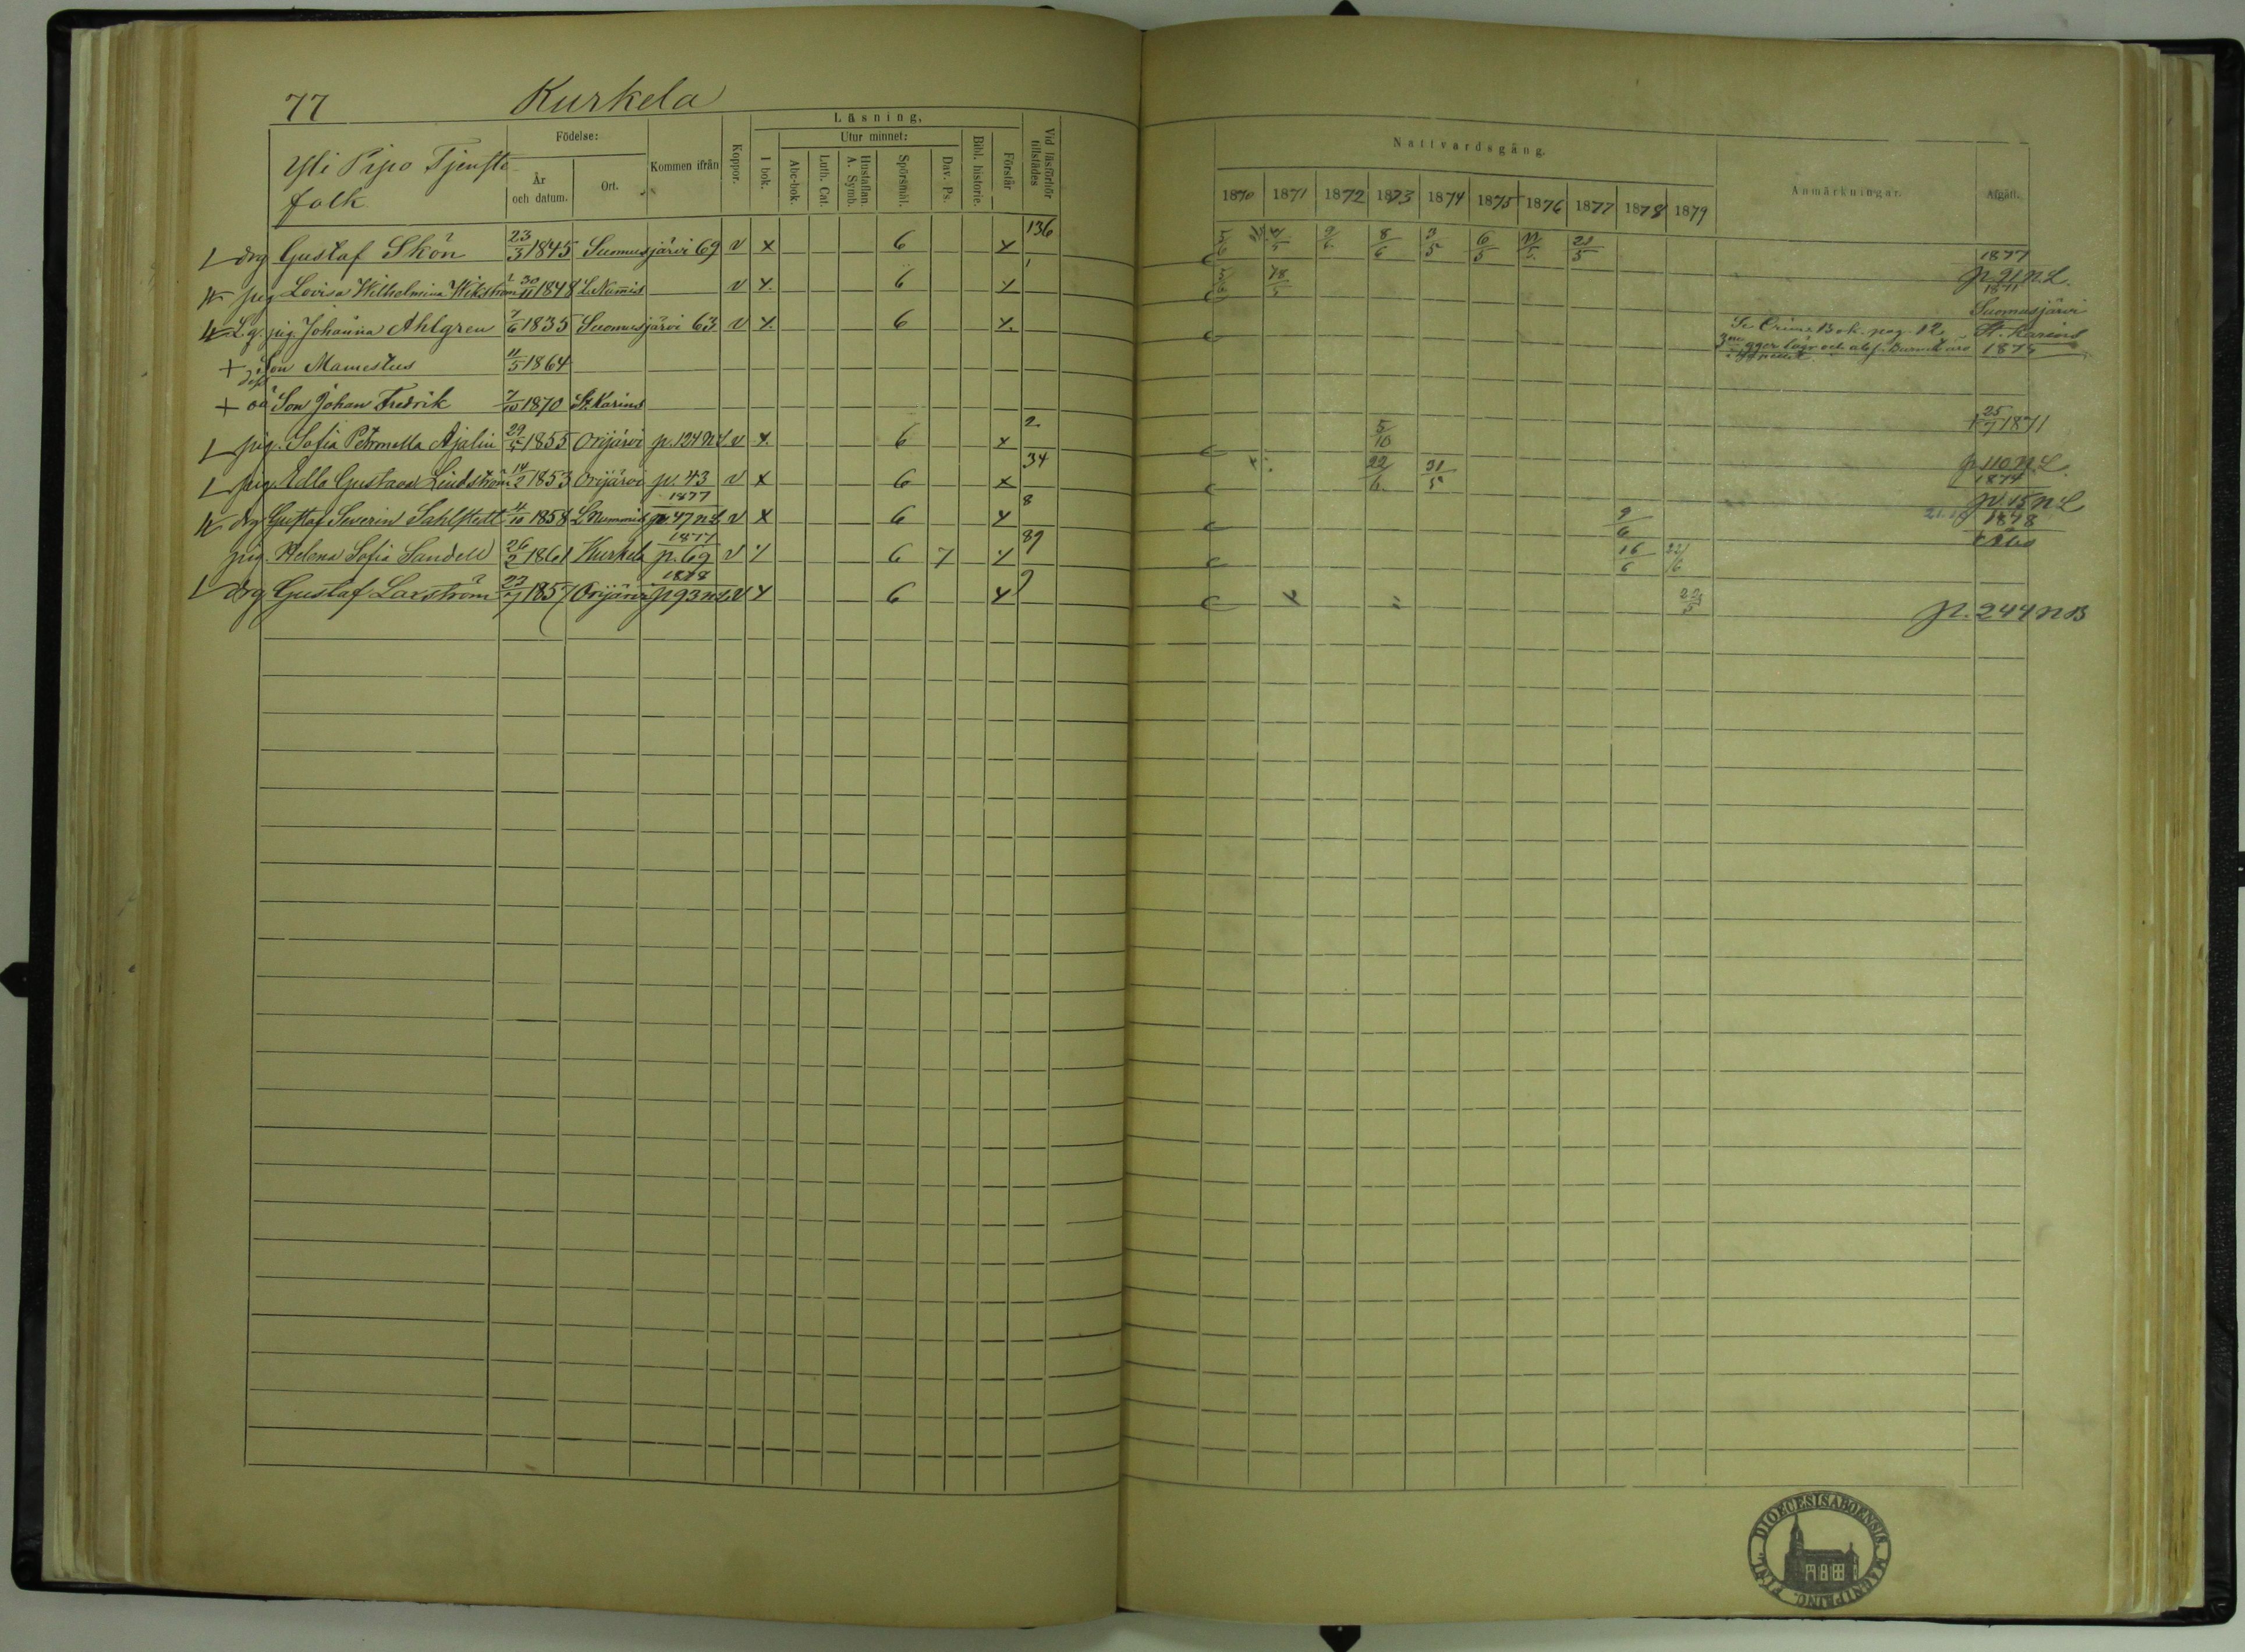 77 Kurkela
Yli Pipo Tjenste
folk
Födelse:
År
och datum.
Ort.
Kommen ifrån
Koppor.
Läsning,
I bok.
Utur minnet:
Abc-bok.
Luth. Cat.
Hustaflan.
A. Symb.
Spörsmål.
Dav. Ps.
Bibl. historie.
Förstår
Vid läsförhör
tillstädes
Nattvardsgång.
1870 1871 1872 1873 1874 1875 1876 1877 1878 1879
Anmärkningar.
Afgått.
drg Gustaf Skön 23/3 1845 Suomusjärvi 69 v x 6 x 136 5/6 9/6 8/6 3/5 6/5 21/5 1877
p. 91 n.L.
pig Lovisa Wilhelmina Wikström 30/11 1848 L Nummis v x 6 x 1 5/6 18/5 1871
Suomusjärvi
L.q. pig. Johanna Ahlgren 7/6 1835 Suomusjärvi 63 v x 6 x Se Crim. Bok. pag. 12. St. Karins
1875
Son Mamestus 11/5 1864
oä Son Johan Fredrik 7/10 1870 St. Karins † 25/7 1871
pig. Sofia Petronella Ajalin 29/5 1855 Orijärvi p. 124 n L v x 6 x 2 5/10 p. 110 n.L.
pig. Edla Gustava Lindström 14/2 1853 Orijärvi p. 43 v x 6 x 34 22/6 31/5 1874
p. 15 n L
drg Gustaf Severin Sahlstedt 4/10 1858 L Nummis 1877 p. 47 n L v x 6 x 8 9/6 1878
pig. Helena Sofia Sandell 26/2 1861 Kurkela 1877 p. 69 v x 6 7 x 89 16/6 22/6
drg Gustaf Laxström 23/7 1857 Orijärvi 1878 p 93 n L v x 6 x 9 p. 244 n B
FINL. DIOECESIS ABOENSIS. MAGNI PRINC.